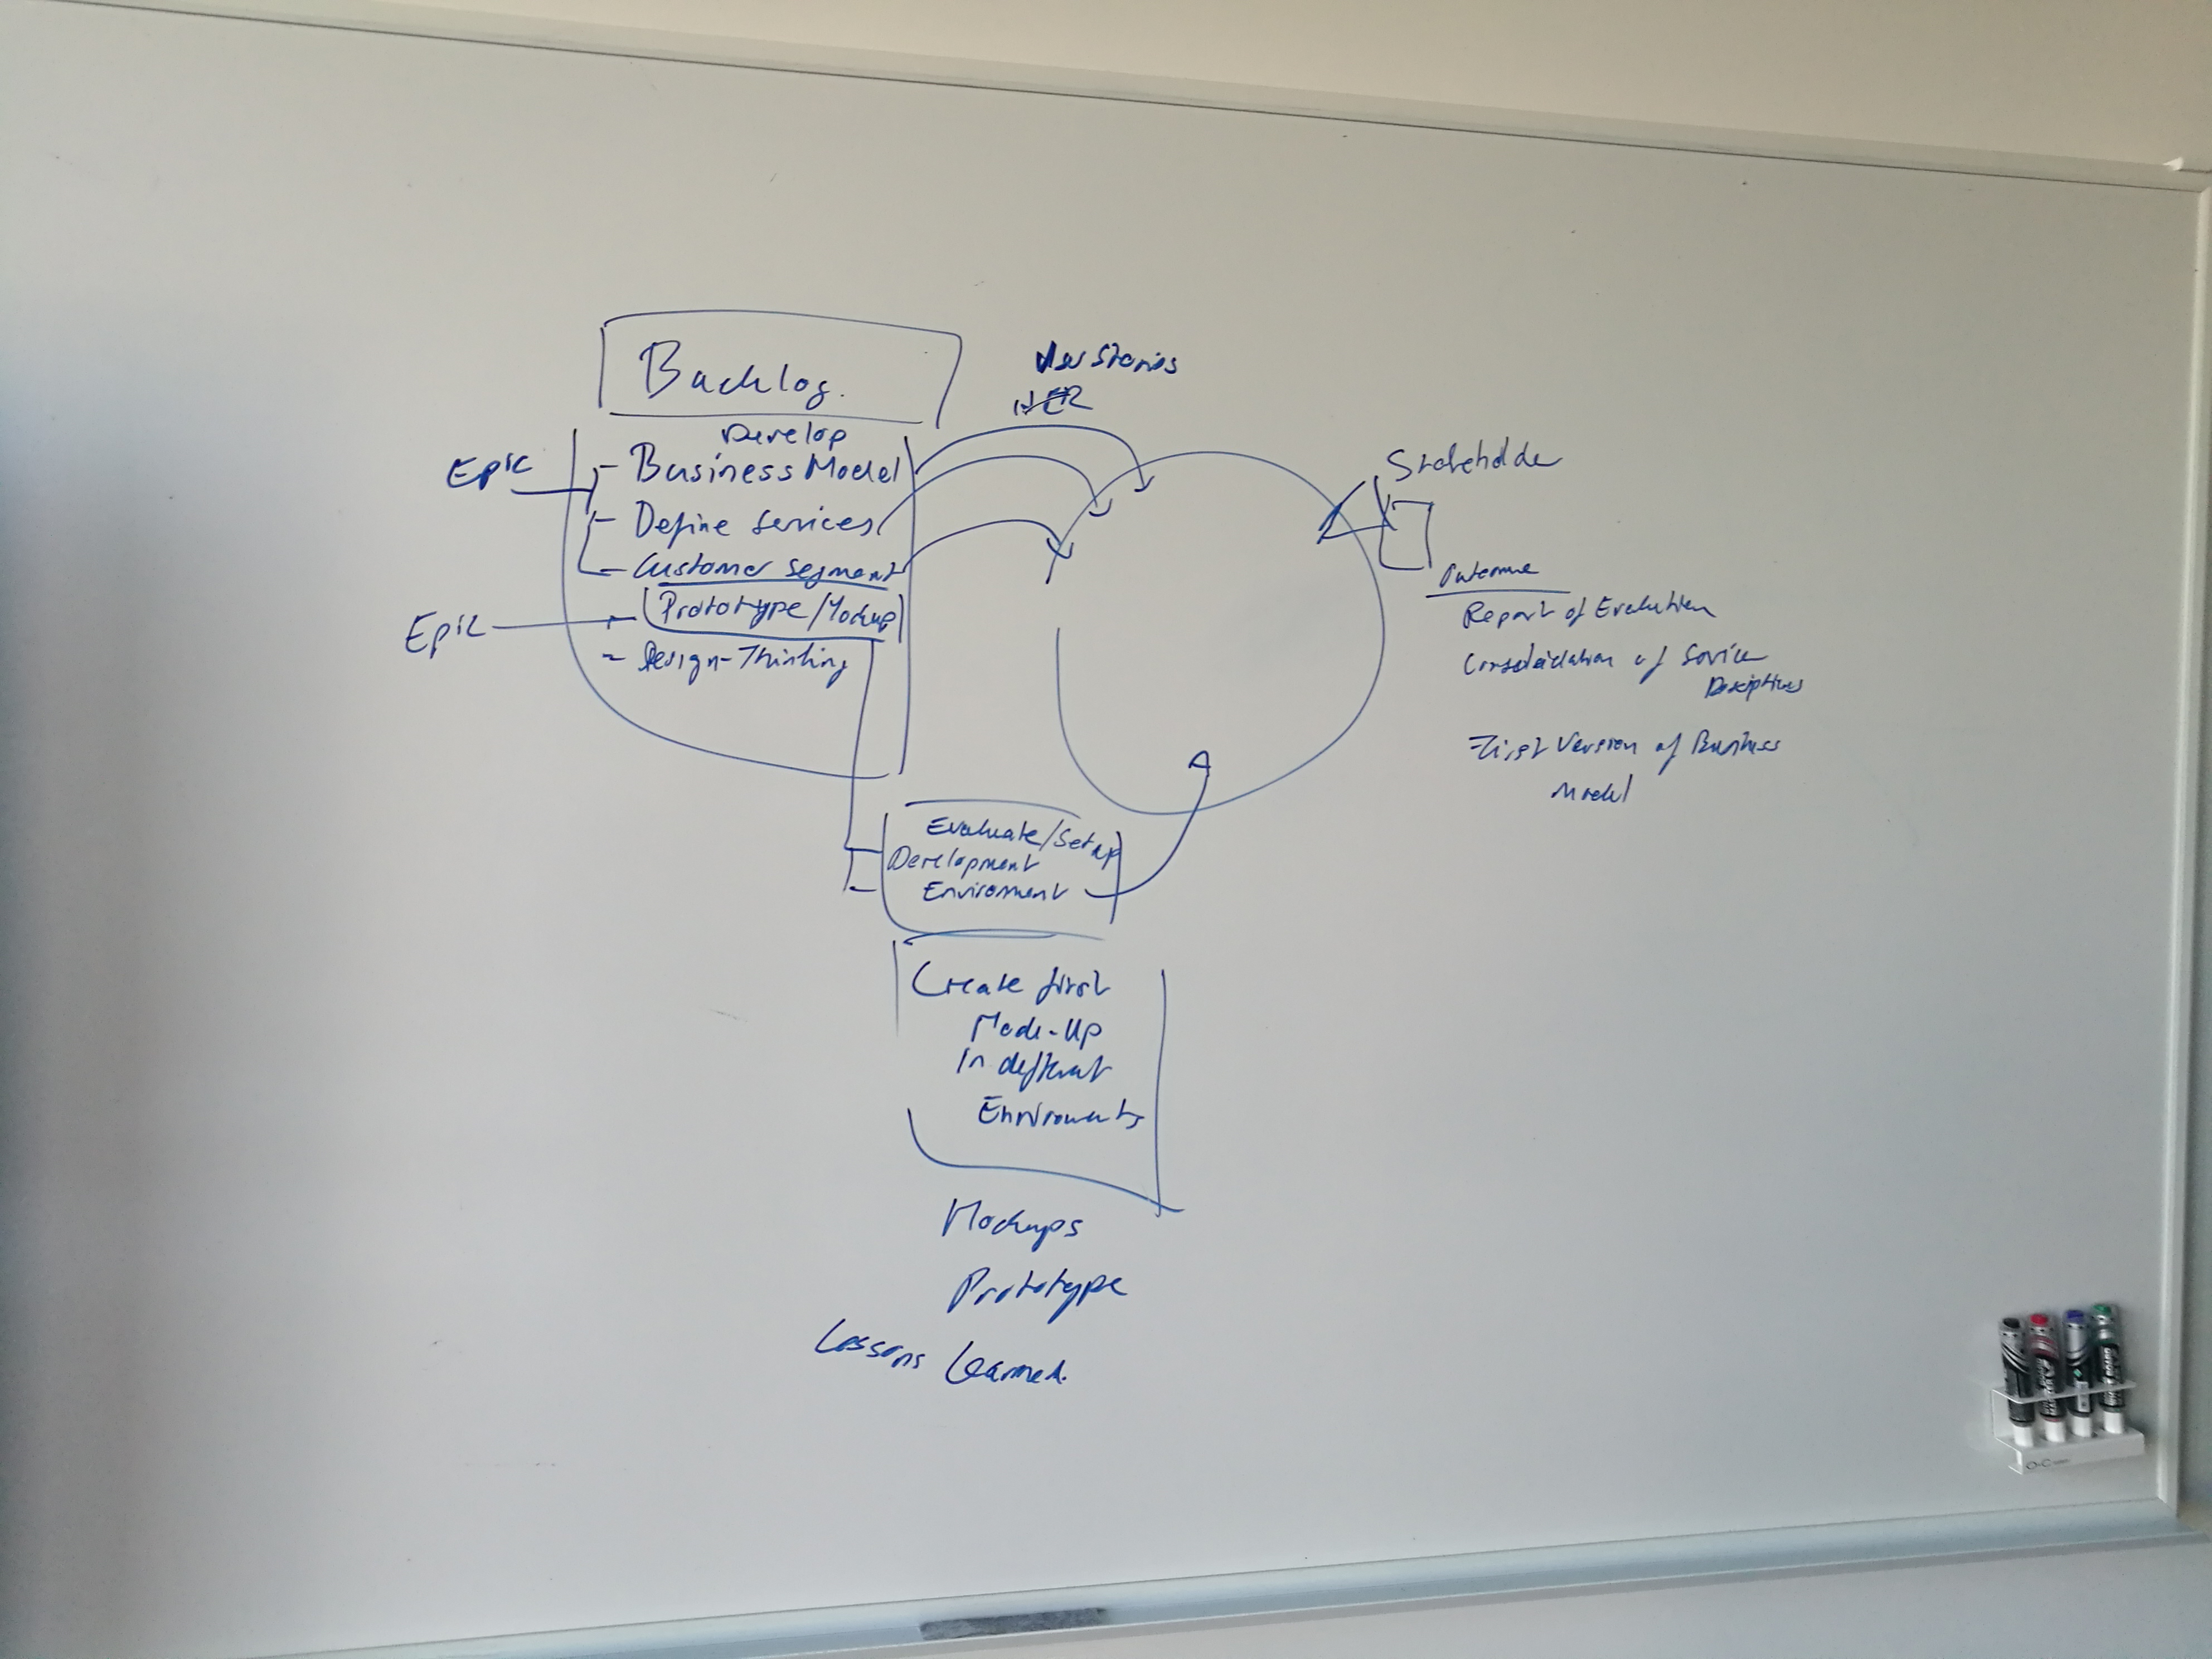 Backlog.
User Stories
Develop
Epic
- Business Model
- Define Services
- Customer segment
Epic
- Prototype/Mockup
- Design-Thinking
Stakeholder
Outcome
Report of Evaluation
Consolidation of Service
Descriptions
First Version of Business
Model
Evaluate/Set up
Development
Enviroment
Create first
Mock-Up
in different
Enviroments
Mockups
Prototype
Lessons Learned.